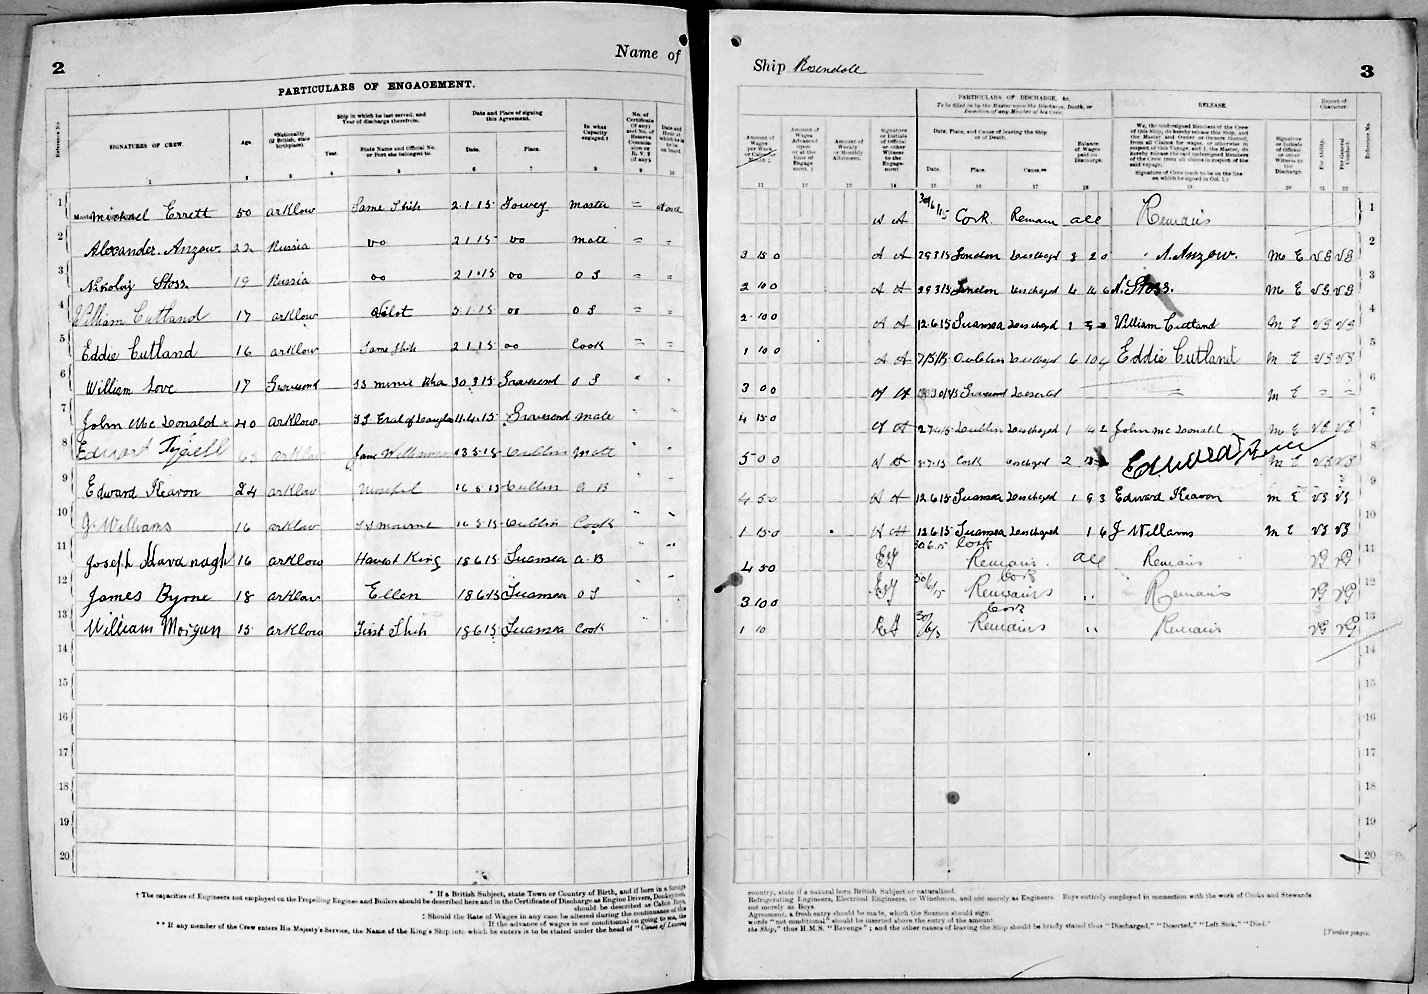 2
Name of
PARTICULARS OF ENGAGEMENT.
Reference No.
SIGNATURES OF CREW.
Age.
*Nationality (if British, state birthplace).
Ship in which he last served, and Year of discharge therefrom.
Year.
State Name and Official No. or Port she belonged to.
Date and Place of signing this Agreement.
Date.
Place.
In what Capacity engaged.†
No. of Certificate (if any) and No. of Reserve Commission or R.V.2 (if any).
Date and Hour at which he is to be on board.
1 2 3 4 5 6 7 8 9 10
1 Michael Errett 50 arklow Same Ship 2.1.15 Fowey master =
2 Alexander. Anzow. 22 Russia Do 2 1 15 Do mate = =
3 Nikolaij Stoss 19 Russia Do 2 1 15 Do O S = =
4 William Cutland 17 arklow 5.1.15 Do O S = =
5 Eddie Cutland 16 arklow Same Ship 2 1 15 Do Cook = =
6 William Love 17 Gravesend SS 30.3 15 Gravesend O S " "
7 John Mc Donald x 40 arklow 11.4.15 Gravesend mate " "
8 Jane Williamson Dublin Mate " "
9 Edward Kearon 24 arklow 16 5 15 Dublin A B " "
10 J. Williams 16 arklow SS mourne 16 5 15 Dublin Cook " "
11 Joseph Kavanagh 16 arklow Harvest King 18 6 15 Swansea A.B " "
12 James Byrne 18 arklow Ellen 18 6 15 Swansea O S " "
13 William Morgan 15 arklow First Ship 18 6 15 Swansea Cook " "
14
15
16
17
18
19
20
* If a British Subject, state Town or Country of Birth, and if born in a foreign
† The capacities of Engineers not employed on the Propelling Engines and Boilers should be described here and in the Certificate of Discharge as Engine Drivers, Donkeymen,
should be described as Cabin Boys,
‡ Should the Rate of Wages in any case be altered during the continuance of this
|| If the advance of wages is not conditional on going to sea, the
** If any member of the Crew enters His Majesty's Service, the Name of the King's Ship into which he enters is to be stated under the head of "Cause of Leaving
Ship Rosendale
3
PARTICULARS OF DISCHARGE, &c.
To be filled in by the Master upon the Discharge, Death, or Desertion of any Member of his Crew.
RELEASE.
Report of Character.
Amount of Wages per Week or Month ‡
Amount of Wages Advanced upon or at the time of Engagement. ||
Amount of Weekly or Monthly Allotment.
Signature or Initials of Official or other Witness to the Engagement
Date, Place, and Cause of leaving the Ship or of Death.
Date.
Place.
Cause.**
Balance of Wages paid on Discharge.
We, the undersigned Members of the Crew of this Ship, do hereby release this Ship, and the Master and Owner or Owners thereof from all Claims for wages, or otherwise in respect of this Voyage, and I, the Master, do hereby release the said undersigned Members of the Crew from all claims in respect of the said voyage.
Signature of Crew (each to be on the line on which he signed in Col. 1.)
Signature or Initials of Official or other Witness to the Discharge.
For Ability.
For General Conduct.
Reference No.
11 12 13 14 15 16 17 18 19 20 21 22
A A 30/6/15 Cork Remain all Remains 1
3 15 0 A A 29 3 15 London Discharged 3 2 0 A. Anzow. M E VG VG 2
2 10 0 A A 29 3 15 London Discharged 4 14 6 N. Stoss. M E VG VG 3
2 10 0 A A 12.6.15 Swansea Discharged William Cutland M E VG VG 4
1 10 0 A A Dublin Discharged 6 10 4 Eddie Cutland M E VG VG 5
3 0 0 A A Gravesend Deserted = M E = = 6
4 15 0 A A Dublin Discharged 1 14 2 John mc Donald M E VG VG 7
5 0 0 A A 8.7.15 Cork Discharged 2 Edward M E VG VG 8
4 5 0 A A 12 6 15 Swansea Discharged 1 9 3 Edward Kearon M E VG VG 9
1 15 0 A A 12 6 15 Swansea Discharged 1 6 J Williams M E VG VG 10
4 5 0 30.6.15 Cork Remains. all Remains VG VG 11
3 10 0 30/6/15 Cork Remains " Remains VG VG 12
1 10 Cork Remains " Remains VG VG 13
14
15
16
17
18
19
20
country, state if a natural born British Subject or naturalized.
Refrigerating Engineers, Electrical Engineers, or Winchmen, and not merely as Engineers. Boys entirely employed in connection with the work of Cooks and Stewards
not merely as Boys.
Agreement, a fresh entry should be made, which the Seamen should sign.
words "not conditional" should be inserted above the entry of the amount
the Ship," thus H.M.S. "Revenge"; and the other causes of leaving the Ship should be briefly stated thus "Discharged," "Deserted," "Left Sick," "Died."
[Twelve pages.